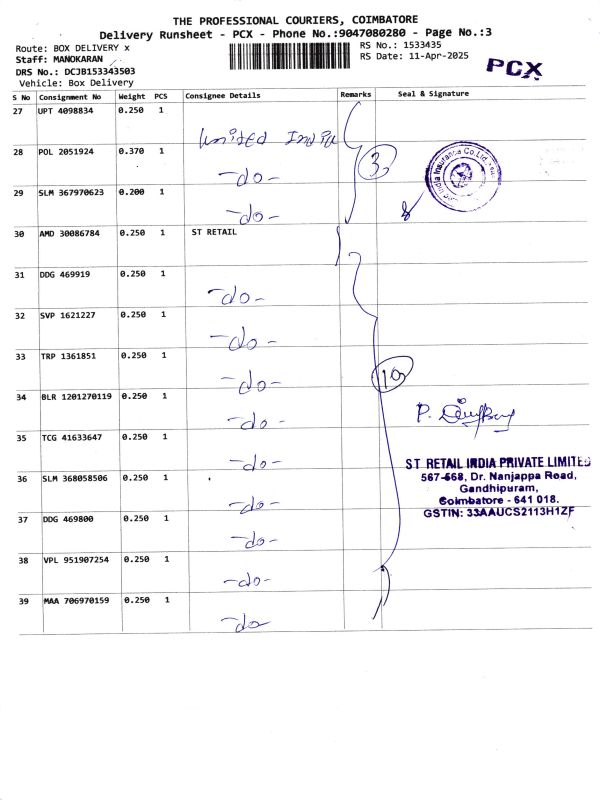 THE PROFESSIONAL COURIERS, COIMBATORE
Delivery Runsheet - PCX - Phone No.:9047080280 - Page No.:3
Route: BOX DELIVERY x
RS No.: 1533435
Staff: MANOKARAN
RS Date: 11-Apr-2025
DRS No.: DCJB153343503
Vehicle: Box Delivery
PCX
S No Consignment No Weight PCS Consignee Details Remarks Seal & Signature
27 UPT 4098834 0.250 1
United India
28 POL 2051924 0.370 1
-do-
3
India Insurance Co.Ltd.
29 SLM 367970623 0.200 1
-do-
30 AMD 30086784 0.250 1 ST RETAIL
31 DDG 469919 0.250 1
-do-
32 SVP 1621227 0.250 1
-do-
33 TRP 1361851 0.250 1
-do-
10
34 BLR 1201270119 0.250 1
-do-
P.
35 TCG 41633647 0.250 1
-do-
ST RETAIL INDIA PRIVATE LIMITED
567-568, Dr. Nanjappa Road,
Gandhipuram,
Coimbatore - 641 018.
GSTIN: 33AAUCS2113H1ZF
36 SLM 368058506 0.250 1
-do-
37 DDG 469800 0.250 1
-do-
38 VPL 951907254 0.250 1
-do-
39 MAA 706970159 0.250 1
-do-